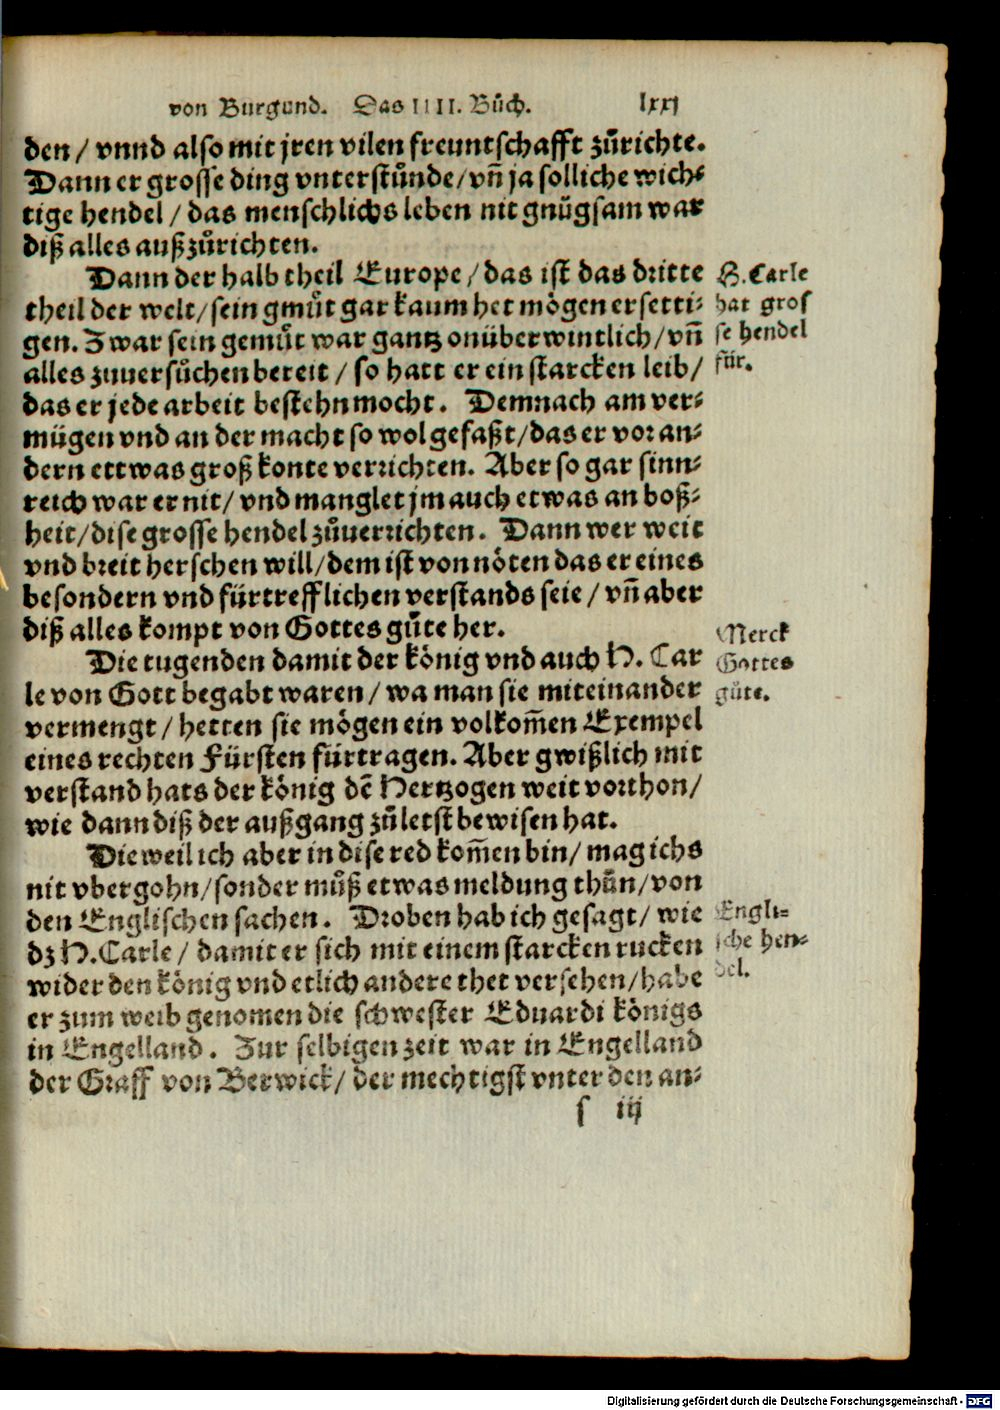 von Burgund. Das IIII. Bůch. lxxj
den / vnnd also mit jren vilen freuntschafft zůrichte.
Dann er grosse ding vnterstůnde / vñ ja solliche wich⸗
tige hendel / das menschlichs leben nit gnůgsam war
diß alles außzůrichten.
Dann der halb theil Europe / das ist das dritte
theil der welt / sein gmůt gar kaum het mögen ersetti⸗
gen. Zwar sein gemůt war gantz onüberwintlich / vñ
alles zuuersůchen bereit / so hatt er ein starcken leib /
das er jede arbeit bestehn mocht. Demnach am ver⸗
mügen vnd an der macht so wol gefaßt / das er vor an⸗
dern ettwas groß konte verrichten. Aber so gar sinn⸗
reich war er nit / vnd manglet jm auch etwas an boß⸗
heit / dise grosse hendel zůuerrichten. Dann wer weit
vnd breit herschen will / dem ist von nöten das er eines
besondern vnd fürtrefflichen verstands seie / vñ aber
diß alles kompt von Gottes gůte her.
Die tugenden damit der könig vnd auch H. Car
le von Gott begabt waren / wa man sie miteinander
vermengt / hetten sie mögen ein volkom̃en Exempel
eines rechten Fürsten fürtragen. Aber gwißlich mit
verstand hats der könig dẽ Hertzogen weit vorthon /
wie dann diß der außgang zůletst bewisen hat.
Die weil ich aber in dise red kom̃en bin / mag ichs
nit vbergohn / sonder můß etwas meldung thůn / von
den Englischen sachen. Droben hab ich gesagt / wie
dz H. Carle / damit er sich mit einem starcken rucken
wider den könig vnd etlich andere thet versehen / habe
er zum weib genomen die schwester Eduardi königs
in Engelland. Zur selbigen zeit war in Engelland
der Graff von Berwick / der mechtigst vnter den an⸗
s iij
H. Carle
hat gros
se hendel
für.
Merck
Gottes
gůte.
Engli⸗
sche hen⸗
del.
Digitalisierung gefördert durch die Deutsche Forschungsgemeinschaft - DFG